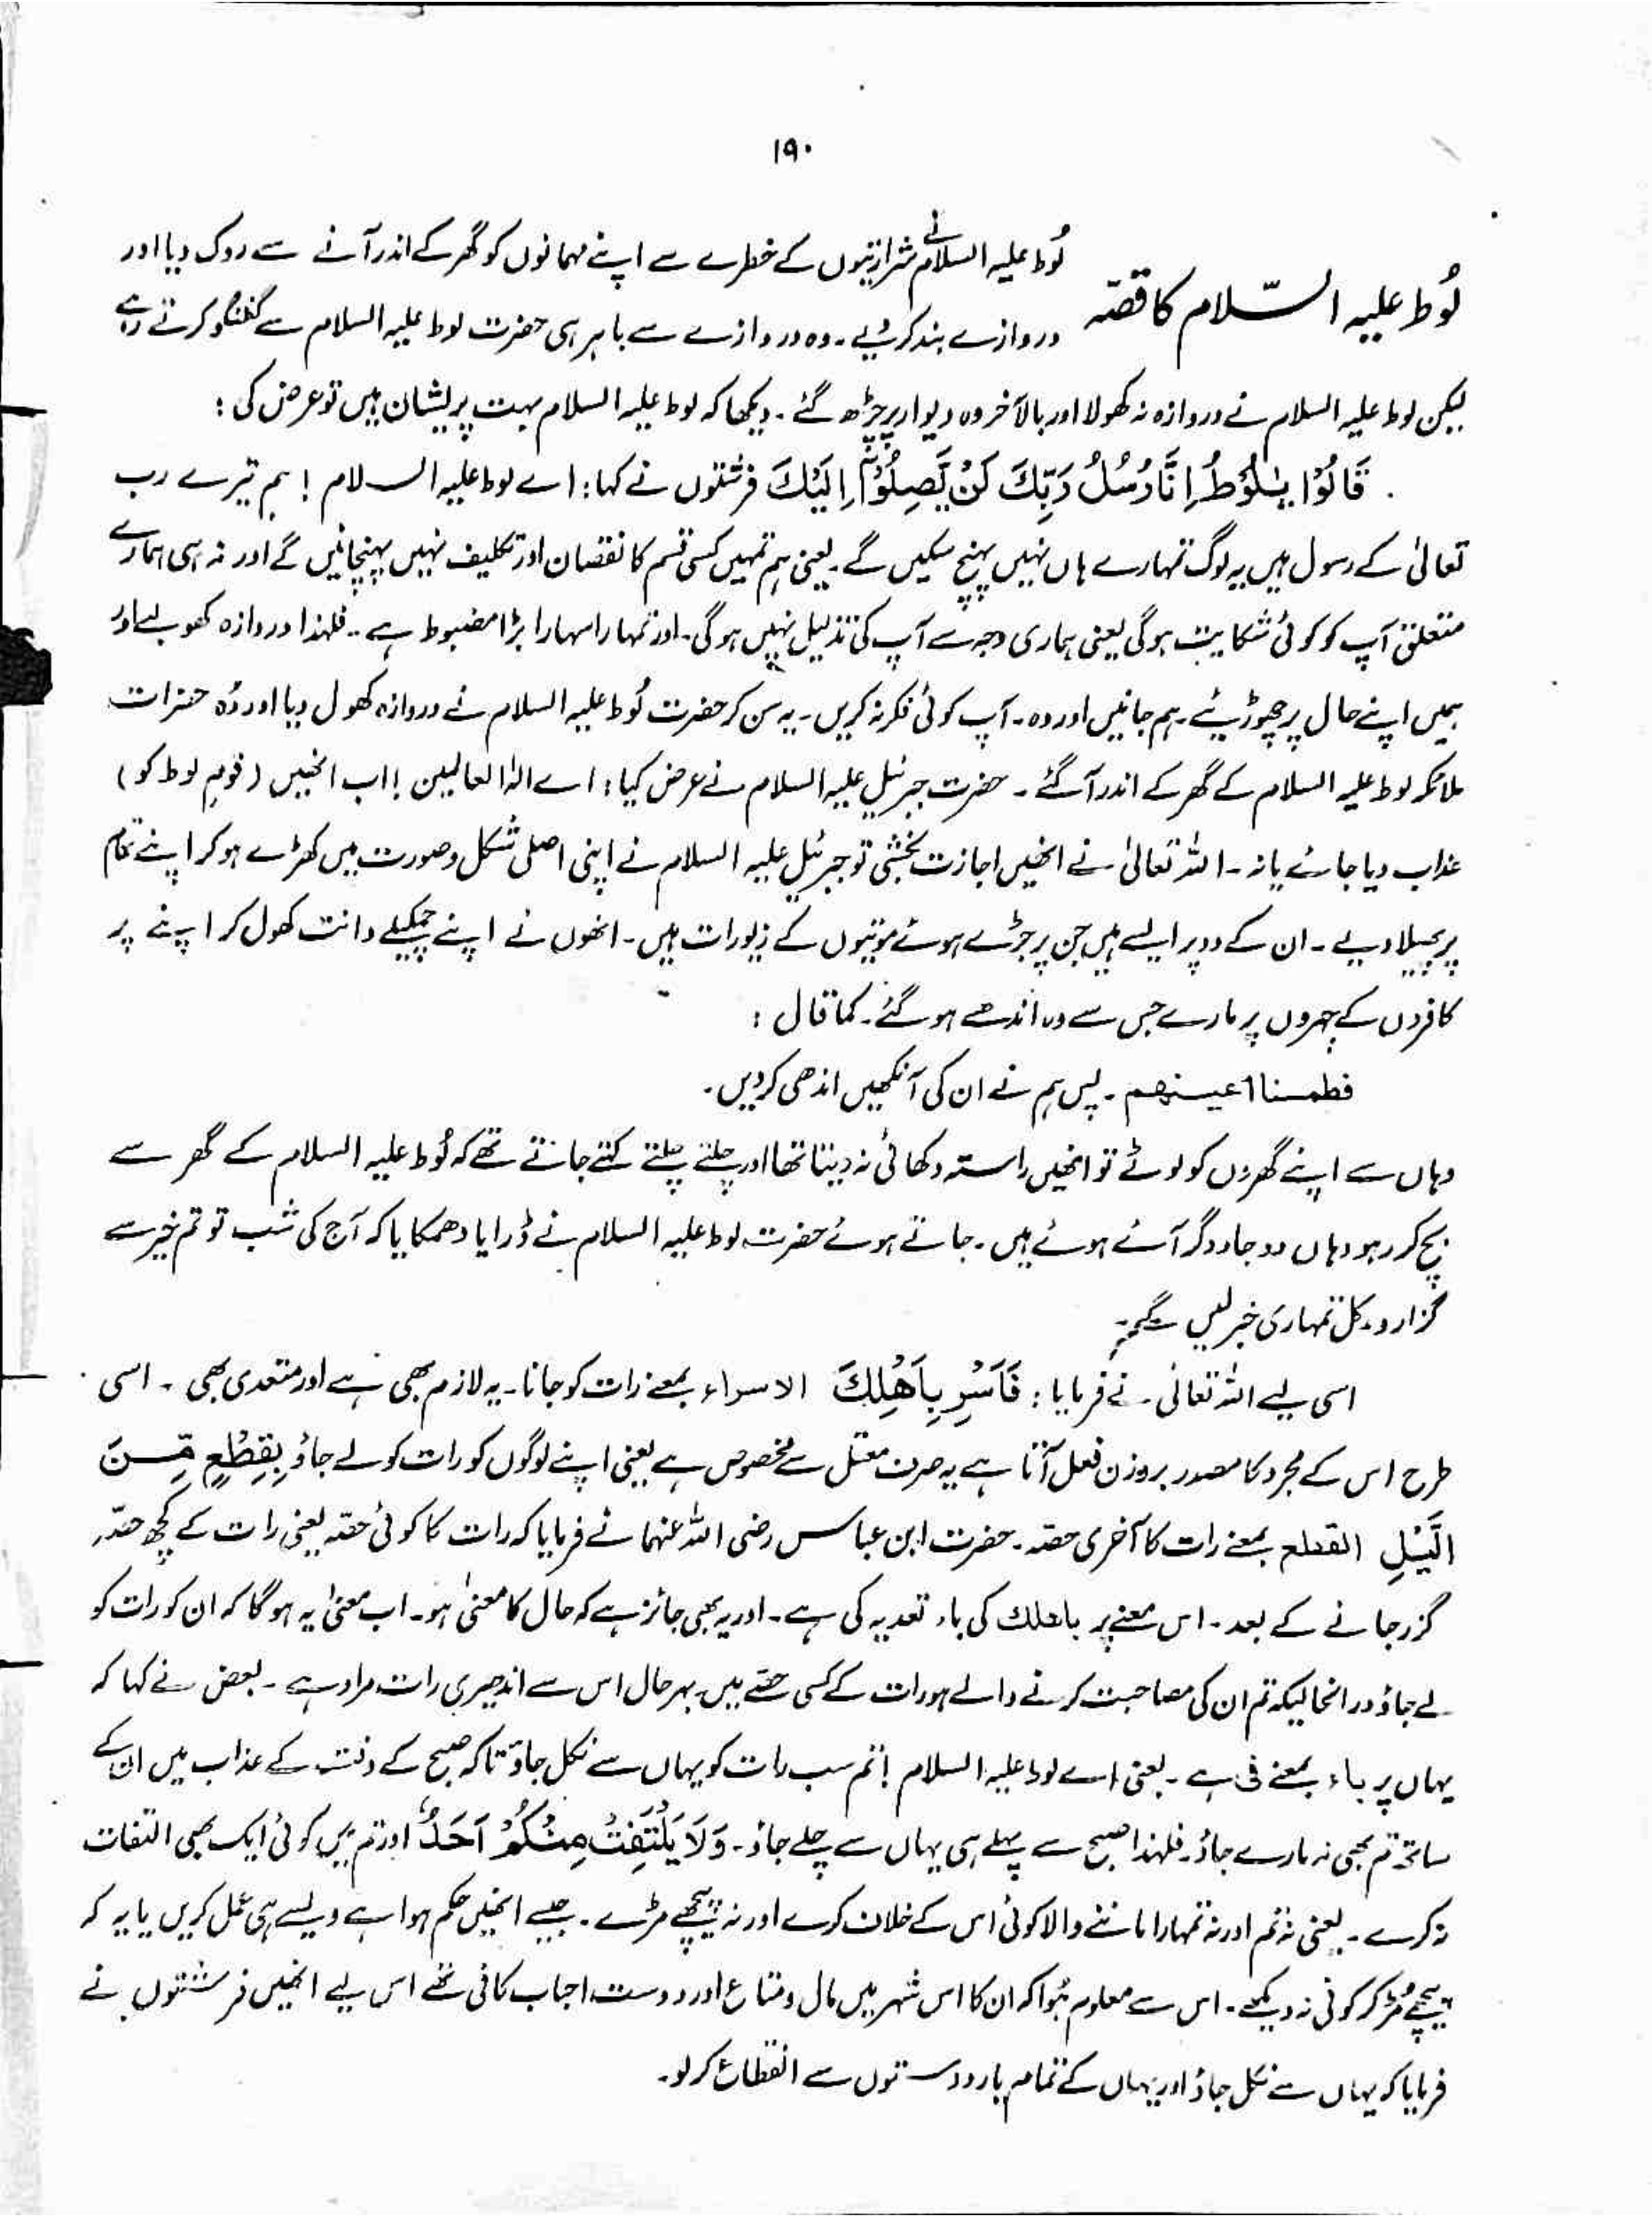 ۱۹۰
لُوط علیہ السّلام کا قصّہ
لُوط علیہ السلام نے شرارتیوں کے خطرے سے اپنے مہمانوں کو گھر کے اندر آنے سے روک دیا اور
دروازے بند کر دیے۔ وہ دروازے سے باہر ہی حضرت لوط علیہ السلام سے گفتگو کرتے رہے
لیکن لوط علیہ السلام نے دروازہ نہ کھولا اور بالآخر وہ دیوار پر چڑھ گئے۔ دیکھا کہ لوط علیہ السلام بہت پریشان ہیں تو عرض کی :
قَالُوْا یٰلُوْطُ اِنَّا رُسُلُ رَبِّكَ لَنْ یَّصِلُوْٓا اِلَیْكَ فرشتوں نے کہا : اے لوط علیہ السلام ! ہم تیرے رب
تعالیٰ کے رسول ہیں یہ لوگ تمہارے ہاں نہیں پہنچ سکیں گے۔ یعنی ہم تمہیں کسی قسم کا نقصان اور تکلیف نہیں پہنچائیں گے اور نہ ہی ہمارے
متعلق آپ کو کوئی شکایت ہوگی یعنی ہماری وجہ سے آپ کی تذلیل نہیں ہوگی۔ اور تمہارا سہارا بڑا مضبوط ہے۔ فلہٰذا دروازہ کھولیے اور
ہمیں اپنے حال پر چھوڑیئے۔ ہم جانیں اور وہ۔ آپ کوئی فکر نہ کریں۔ یہ سن کر حضرت لُوط علیہ السلام نے دروازہ کھول دیا اور وُہ حضرات
ملائکہ لوط علیہ السلام کے گھر کے اندر آگئے۔ حضرت جبرئیل علیہ السلام نے عرض کیا : اے الٰہ العالمین ! اب انھیں (قومِ لوط کو)
عذاب دیا جائے یا نہ۔ اللہ تعالیٰ نے انھیں اجازت بخشی تو جبرئیل علیہ السلام نے اپنی اصلی شکل و صورت میں کھڑے ہو کر اپنے تمام
پر پھیلا دیے۔ ان کے دو پر ایسے ہیں جن پر جڑے ہوئے موتیوں کے زیورات ہیں۔ انھوں نے اپنے چمکیلے دانت کھول کر اپنے پر
کافروں کے چہروں پر مارے جس سے وہ اندھے ہوگئے۔ کما قال :
فطمسنا اعینھم۔ پس ہم نے ان کی آنکھیں اندھی کر دیں۔
وہاں سے اپنے گھروں کو لوٹے تو انھیں راستہ دکھائی نہ دیتا تھا اور چلتے چلتے کہتے جاتے تھے کہ لُوط علیہ السلام کے گھر سے
بچ کر رہو وہاں دو جادوگر آئے ہوئے ہیں۔ جاتے ہوئے حضرت لوط علیہ السلام نے ڈرایا دھمکایا کہ آج کی شب تو تم خیر سے
گزارو۔ کل تمہاری خبر لیں گے۔
اسی لیے اللہ تعالیٰ نے فرمایا : فَاَسْرِ بِاَهْلِكَ الاسراء بمعنے رات کو جانا۔ یہ لازم بھی ہے اور متعدی بھی۔ اسی
طرح اس کے مجرد کا مصدر بروزن فعل آتا ہے یہ صرف معتل سے مخصوص ہے یعنی اپنے لوگوں کو رات کو لے جاؤ بِقِطْعٍ مِّنَ
الَّیْلِ القطع بمعنے رات کا آخری حصہ۔ حضرت ابن عباس رضی اللہ عنہما نے فرمایا کہ رات کا کوئی حصّہ یعنی رات کے کچھ حصّہ
گزر جانے کے بعد۔ اس معنے پر باھلك کی باء تعدیہ کی ہے۔ اور یہ بھی جائز ہے کہ حال کا معنیٰ ہو۔ اب معنیٰ یہ ہوگا کہ ان کو رات کو
لے جاؤ درانحالیکہ تم ان کی مصاحبت کرنے والے ہو رات کے کسی حصّے میں بہرحال اس سے اندھیری رات مراد ہے۔ بعض نے کہا کہ
یہاں پر باء بمعنے فی ہے۔ یعنی اے لوط علیہ السلام ! تم سب رات کو یہاں سے نکل جاؤ تاکہ صبح کے وقت کے عذاب میں ان کے
ساتھ تم بھی نہ مارے جاؤ۔ فلہٰذا صبح سے پہلے ہی یہاں سے چلے جاؤ۔ وَلَا یَلْتَفِتْ مِنْكُمْ اَحَدٌ اور تم میں کوئی ایک بھی التفات
نہ کرے۔ یعنی نہ تم اور نہ تمہارا ماننے والا کوئی اس کے خلاف کرے اور نہ پیچھے مڑے۔ جیسے انھیں حکم ہوا ہے ویسے ہی عمل کریں یا یہ کہ
پیچھے مُڑ کر کوئی نہ دیکھے۔ اس سے معلوم ہُوا کہ ان کا اس شہر میں مال و متاع اور دوست احباب کافی تھے اس لیے انھیں فرشتوں نے
فرمایا کہ یہاں سے نکل جاؤ اور یہاں کے تمام یار دوستوں سے انقطاع کر لو۔